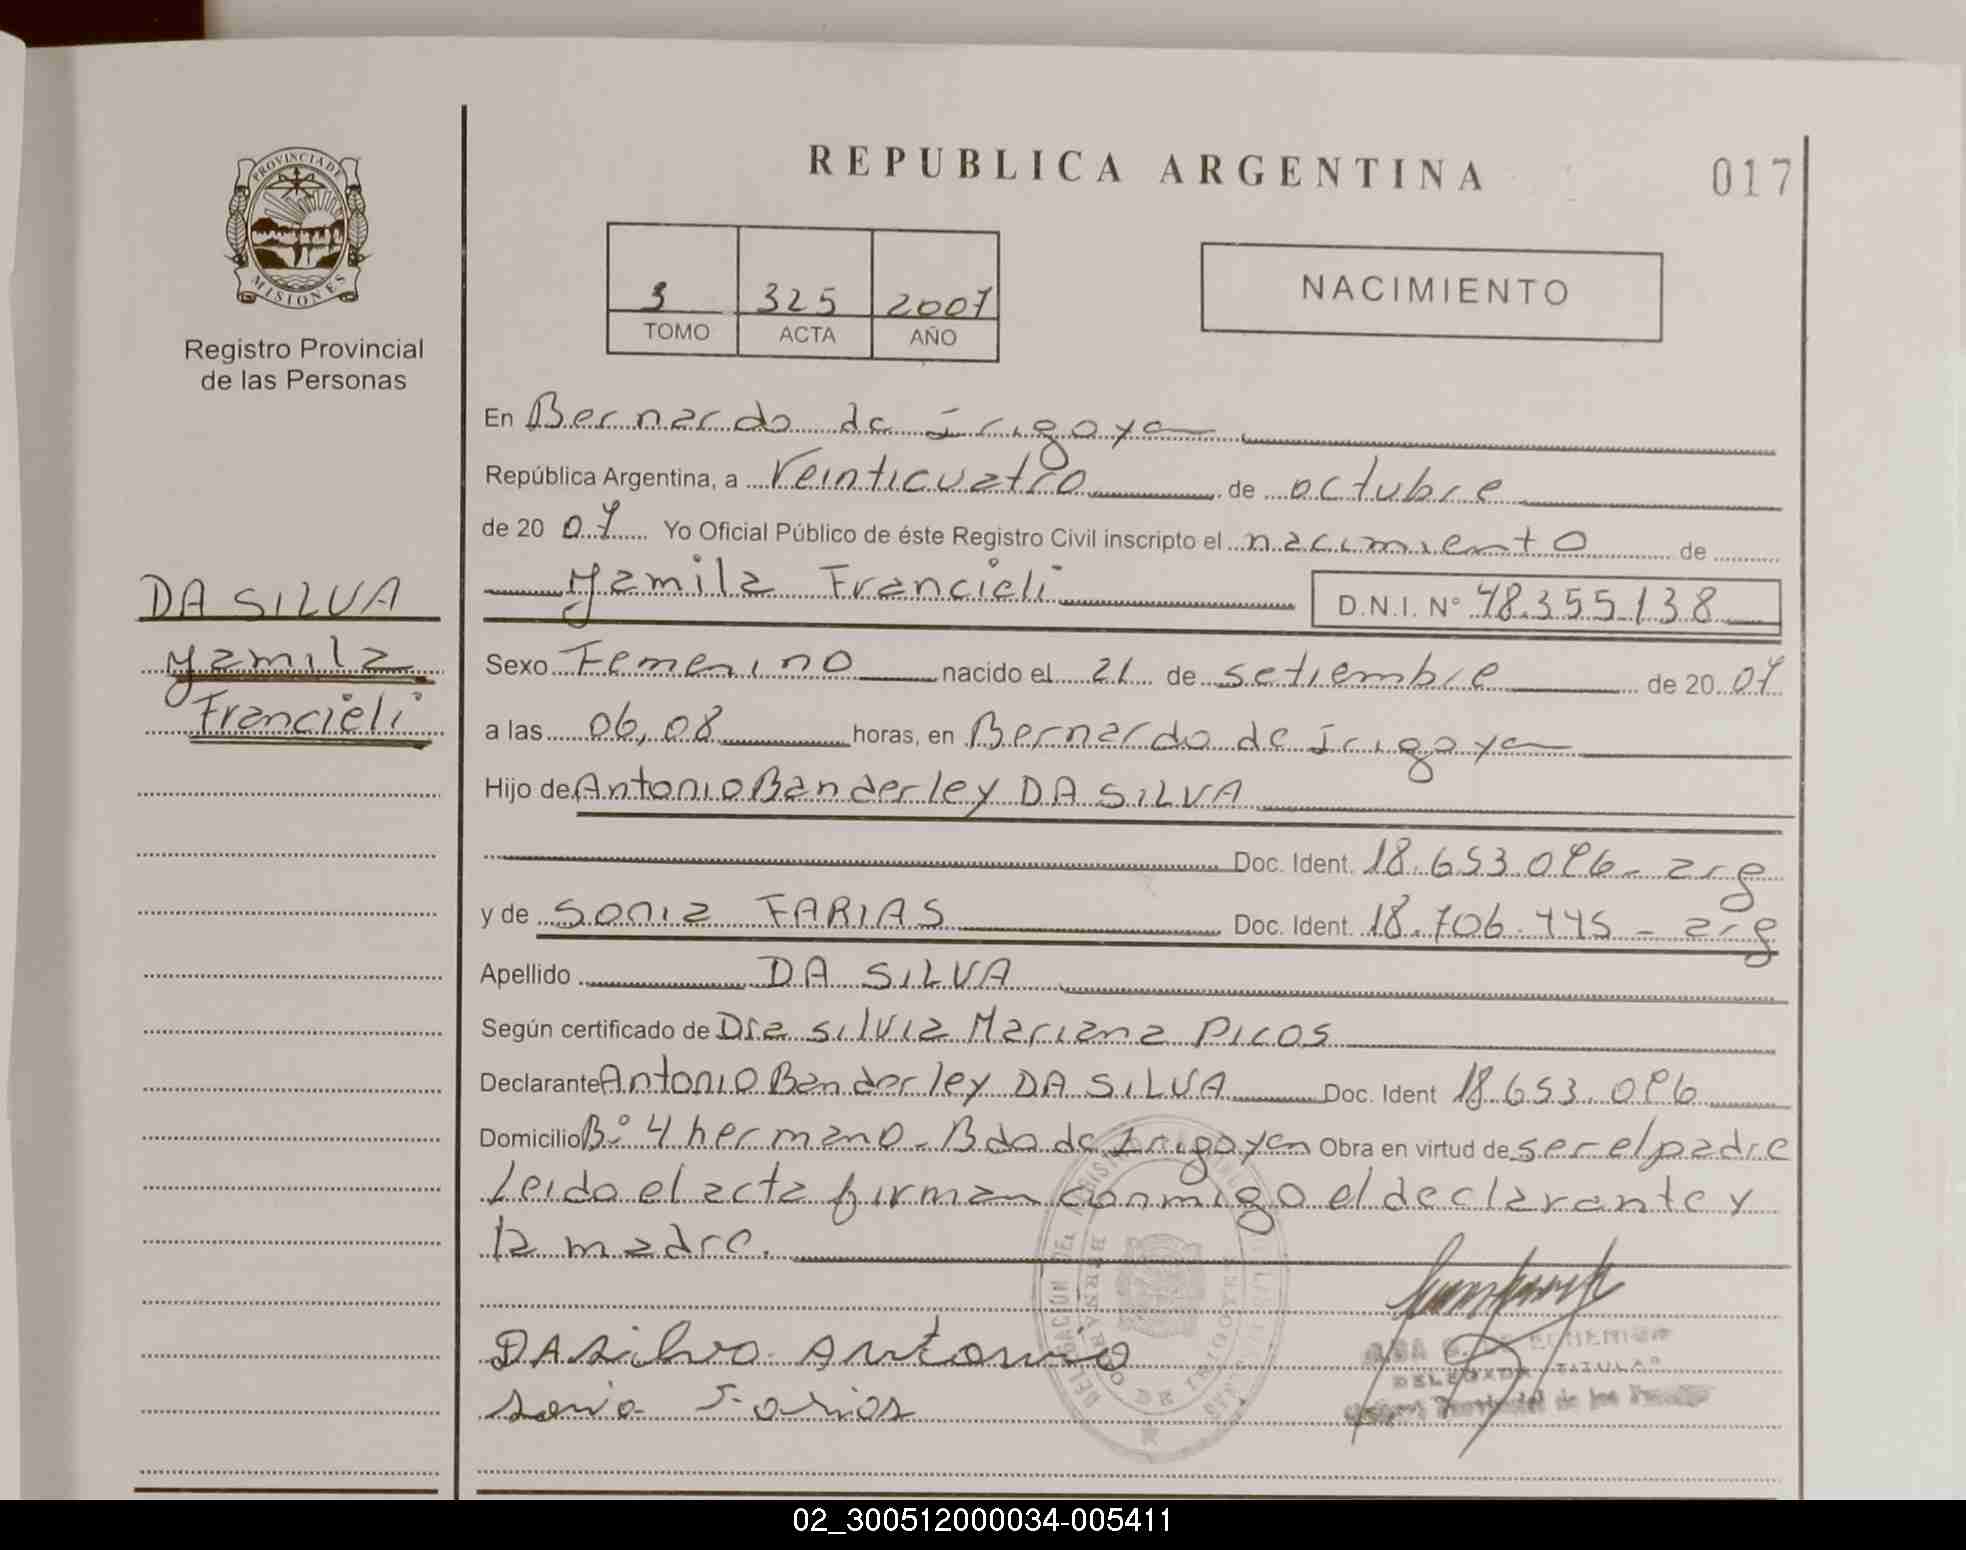 REPUBLICA ARGENTINA
017
PROVINCIA DE
MISIONES
Registro Provincial
de las Personas
3 325 2007
TOMO ACTA AÑO
NACIMIENTO
En Bernardo de Irigoyen
República Argentina, a Veinticuatro de octubre
de 20 07 Yo Oficial Público de éste Registro Civil inscripto el nacimiento de
Yamila Francieli D.N.I. Nº 48.355.138
DA SILVA
Yamila
Francieli
Sexo Femenino nacido el 21 de setiembre de 20 07
a las 06,08 horas, en Bernardo de Irigoyen
Hijo de Antonio Banderley DA SILVA
Doc. Ident. 18.653.096- arg
y de Sonia FARIAS Doc. Ident. 18.706.445 - arg
Apellido DA SILVA
Según certificado de Dra Silvia Mariana PICOS
Declarante Antonio Banderley DA SILVA Doc. Ident 18.653.096
Domicilio Bº 4 hermano - Bdo de Irigoyen Obra en virtud de ser el padre
Leido el acta firman conmigo el declarante y
la madre.
DA Silva Antonio
Sonia Farias
DELEGADA TITULAR
Provincial de las
02_300512000034-005411